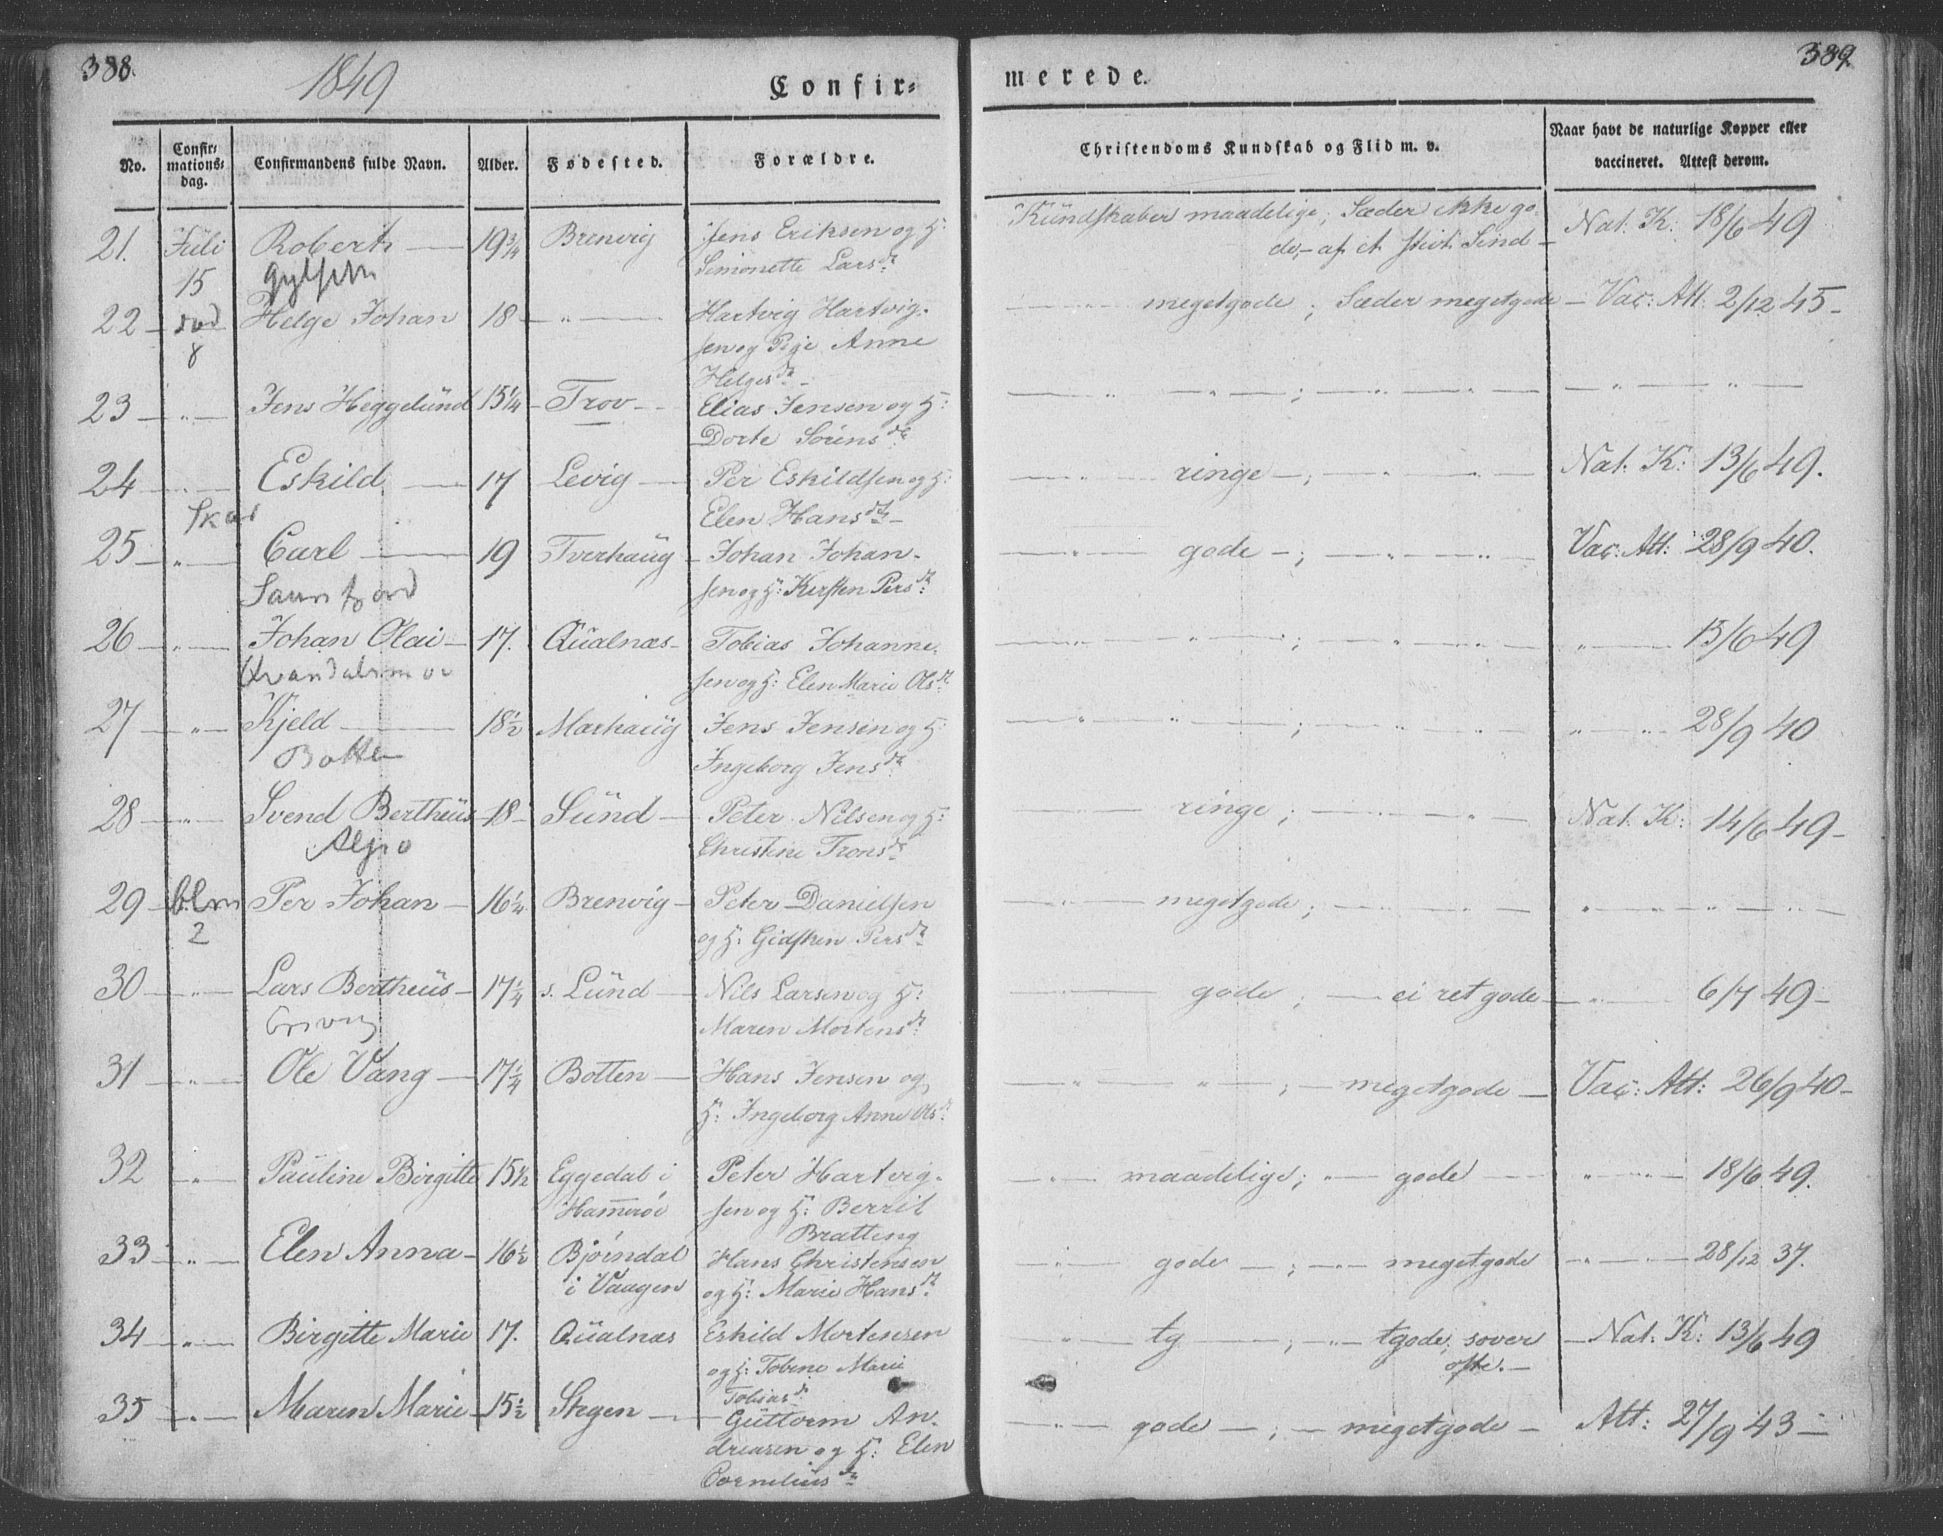 388.
1849
Confir-
merede.
389.
No.
Confir-
mations-
dag.
Confirmandens fulde Navn.
Alder.
Fødested.
Forældre.
Christendoms Kundskab og Flid m. v.
Naar havt de naturlige Kopper eller
vaccineret. Attest derom.
21. Jüli Robert 19 3/4 Brenvig Jens Eriksen og H: Kündskaber maadelige; Sæder ikke go- Nat. K: 18/6 49
15 Simonette Larsdr. de, af et stivt Sind
22 Helge Johan 18 " Hartvig Hartvig- " megetgode; Sæder megetgode Vac: Att. 2/12 45
8 sen og Pige Anne
Helgesdr.
23 " Jens Heggelünd 15 1/4 Trov Elias Jensen og H: " " ; " " " "
Dorte Sörensdr.
24 " Eskild 17 Levig Per Eskildsen og H: " ringe ; " " Nat. K: 13/6 49.
Elen Hansdr.
25 " Carl 19 Tverhaüg Johan Johan- " gode ; " " Vac: Att: 28/9 40.
sen og H: Kirsten Persdr.
26 " Johan Olai 17. Qüalnæs Tobias Johanne- " " ; " " " 15/6 49
sen og H: Elen Marie Olsdr.
27 " Kjeld 18 1/2 Marhaüg Jens Jensen og H: " " ; " " " " 28/9 40
Botten Ingeborg Jensdr.
28 " Svend Bertheüs 18 Sünd Peter Nilsen og H: ringe ; " Nat. K: 14/6 49
Christine Tronsdr.
29 Per Johan 16 1/4 Brenvig Peter Danielsen " megetgode ; " " " "
2 og H: Gidsken Persdr.
30 " Lars Bertheüs 17 1/4 s. Lünd Nils Larsen og H: gode ; ei ret gode " 6/7 49
Maren Mortensdr.
31 " Ole Vang 17 1/4 Botten Hans Jensen og " " ; megetgode Vac: Att: 26/9 40
H: Ingeborg Anne Olsdr.
32 " Pauline Birgitte 15 1/2 Eggedal i Peter Hartvig- " maadelige; " gode " " 18/6 49.
Hammeröe sen og H: Berrit
Bratteng
33 " Elen Anna 16 1/2 Bjørndal Hans Christensen " gode ; " megetgode " " 28/12 37.
i Vaagen og H: Marie Hansdr.
34 " Birgitte Marie 17. Qüalnæs Eskild Mortensen " tg ; " tgode; sover Nat. K: 13/6 49
og H: Tobine Marie ofte.
Tobiasdr.
35 " Maren Marie 15 1/2 Stegen Güttorm An- " gode ; megetgode Att: 27/9 43
dreasen og H: Elen
Corneliusdr.